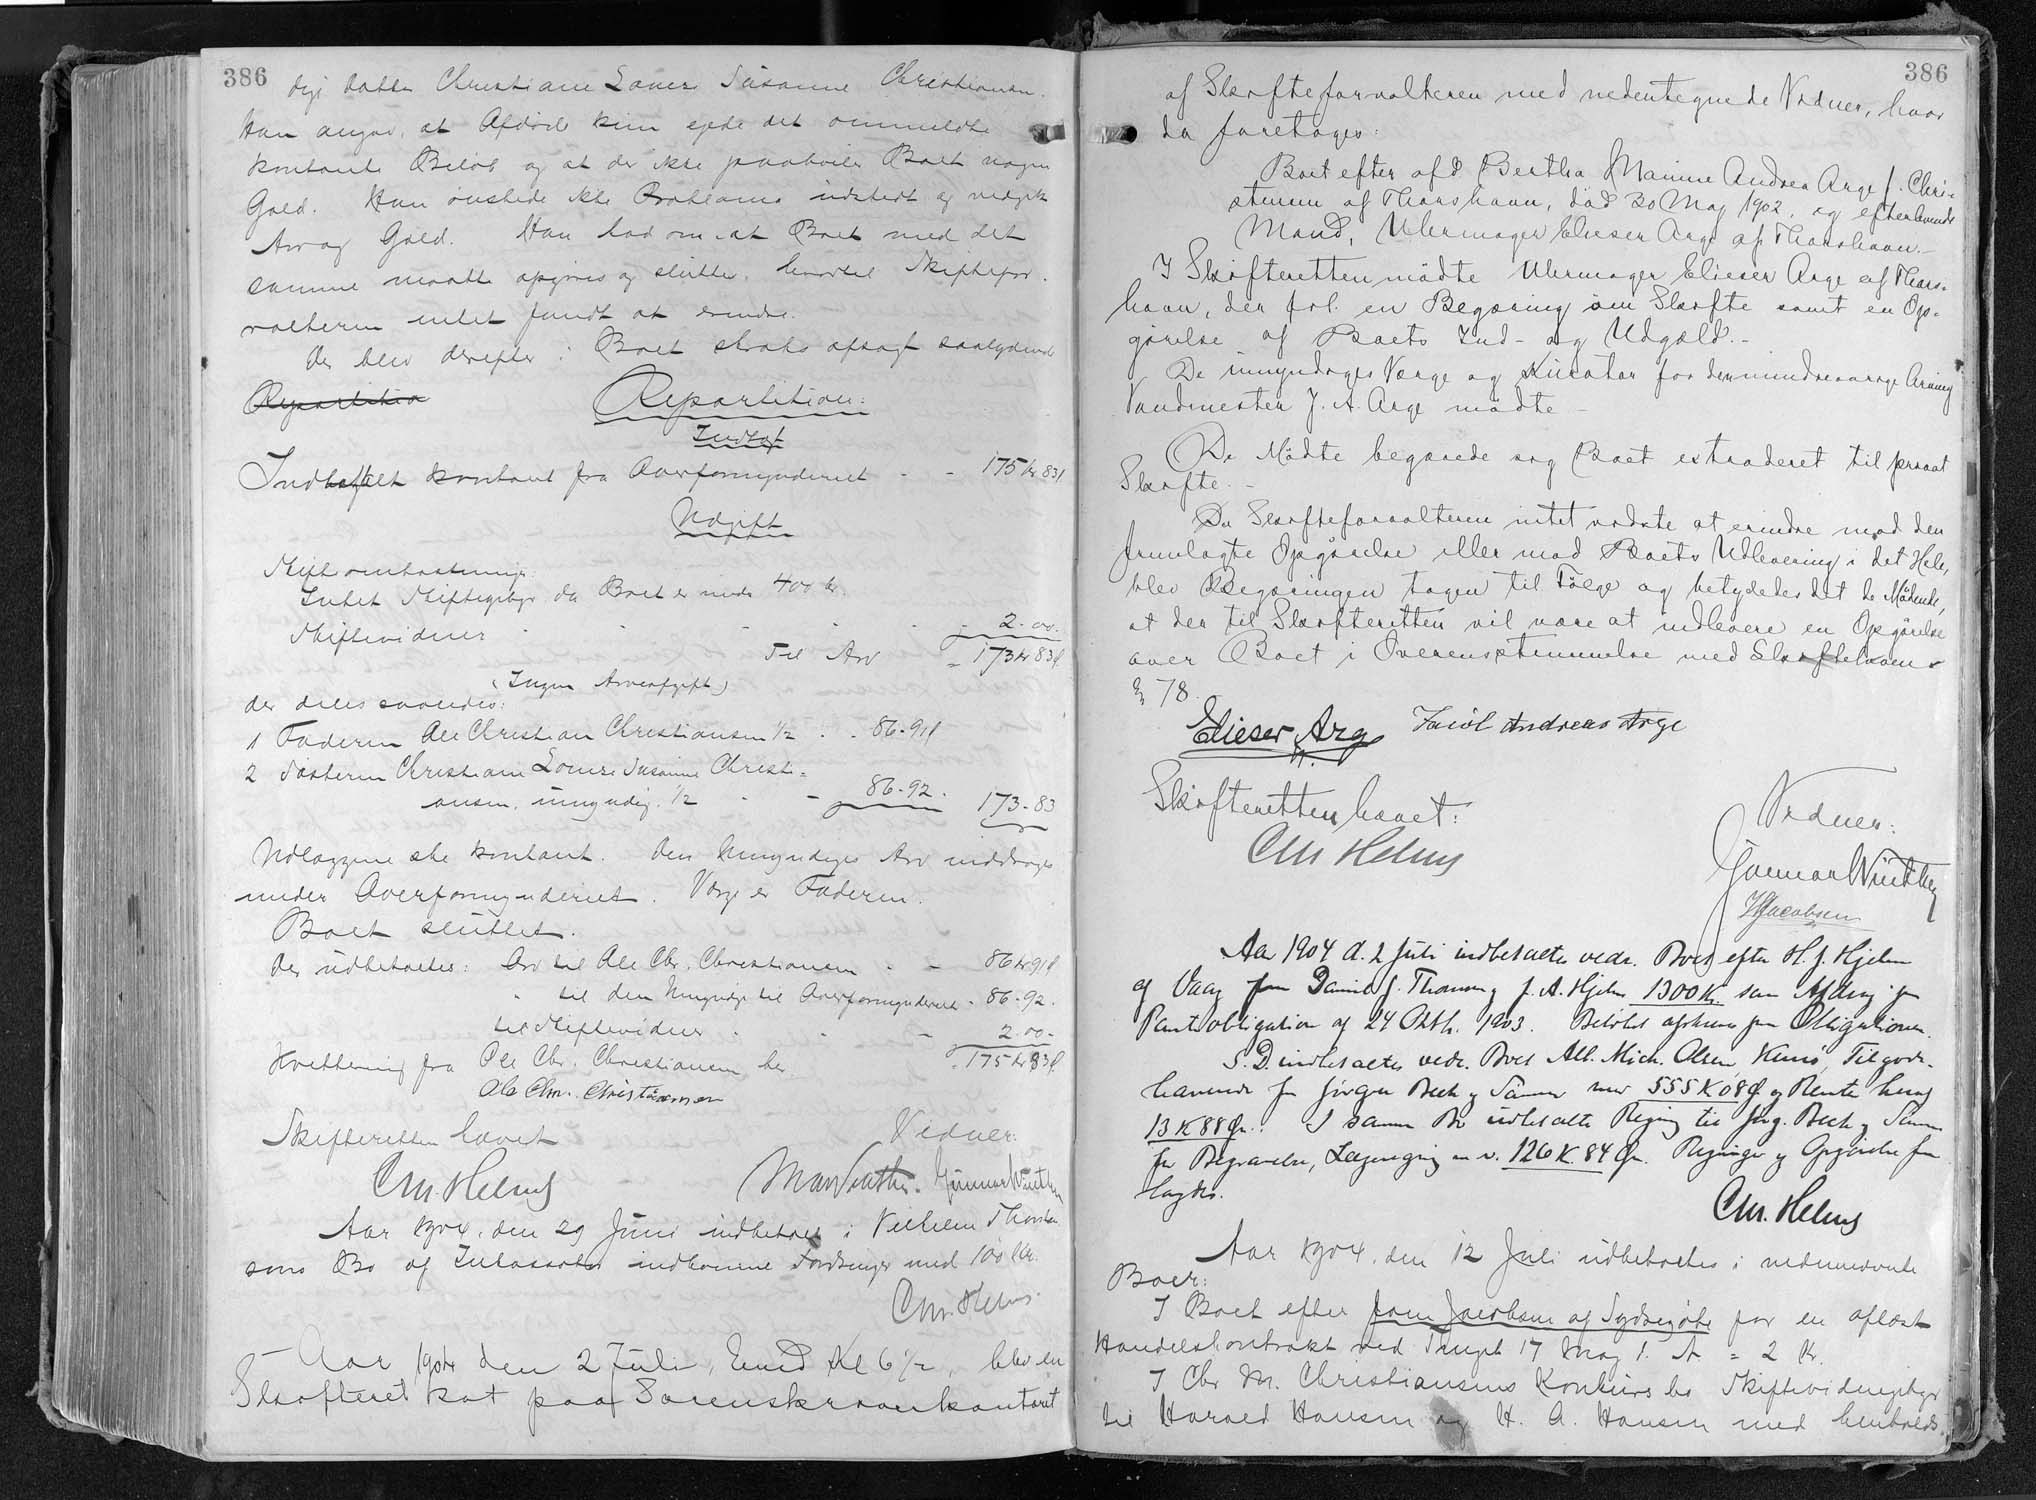 386
dige Datter Christiane Louise Susanne Christiansen.
Han angav, at Afdøde kun ejede det ommeldte
kontante Beløb og at der ikke paahviler Boet nogen
Gæld. Han ønskede ikke Proklama udstedt og vedgik
Arv og Gæld. Han bad om at Boet med det
samme maatte opgøres og sluttes, hvortil Skiftefor-
valteren intet fandt at erindre.
Der blev derefter i Boet straks afsagt saalydende
Repartition
Repartition:
Indtægt
Indbetalt kontant fra Overformynderiet - - 175 kr 83 f
Udgift
Skifteomkostninger:
Intet Skiftegebyr da Boet er under 400 kr.
Skiftevidner - - - - - 2.00.
Til Arv - 173 kr 83 f.
(Ingen Arveafgift)
der deles saaledes:
1 Faderen Ole Christian Christiansen 1/2 - - 86-91 f
2 Søsteren Christiane Louise Susanne Christi=
ansen, umyndig, 1/2 - - 86-92. 173-83
Udlæggene ske kontant. Den Umyndiges Arv inddrages
under Overformynderiet. Værge er Faderen.
Boet sluttet.
Der udbetaltes: Arv til Ole Chr. Christiansen - - 86 kr 91 f
" til den Umyndige til Overformynderiet - 86-92.
til Skiftevidner - - - 2.00-
175 kr 83 f
Kvittering fra Ole Chr. Christiansen her
Ole Chr. Christiansen
Skifteretten hævet
Vidner:
Chr. Helms
Gunnar Winther
Aar 1904, den 29 Juni indbetalt i Vilhelm Thom
sens Bo af indkomne Fordringer med 100 Kr.
Chr. Helms.
Aar 1904 den 2 Juli, Emd Kl 6 1/2, blev en
Skifteret sat paa Sorenskriverkontoret
386
af Skifteforvalteren med nedentegnede Vidner, hvor
da foretoges:
Boet efter afd. Bertha Andrea Arge f. Chri=
stensen af Thorshavn, død 30 Maj 1902, og efterlevende
Mand, Uhrmager Elieser Arge af Thorshavn.-
I Skifteretten mødte Uhrmager Elieser Arge af Thors=
havn, der frl. en Begæring om Skifte samt en Op=
gørelse af Boets Ind- og Udgæld.-
De umyndiges Værge og Kurator for den mindreaarige Arving
Vandmester J. A. Arge mødte -
De Mødte begærede sig Boet extraderet til privat
Skifte.-
Da Skifteforvalteren intet vidste at erindre mod den
fremlagte Opgørelse eller mod Boets Udlevering i det Hele,
blev Begæringen tagen til Følge og betydedes det de Mødende,
at der til Skifteretten vil være at indlevere en Opgørelse
over Boet i Overensstemmelse med Skiftelovens
§ 78.
Elieser Arge Jacob Andreas Arge
Skifteretten hævet:
Vidner:
Chr Helms
Gunnar Winther
HJacobsen
Aar 1904 d. 2 Juli indbetaltes vedr. Boet efter H. J. Hjelm
af Vaag fra Daniel J. Thomsen og J. A. Hjelm 1300 Kr. som Afdrag paa
Pantobligation af 24 Oktb. 1903. Beløbet afskreven paa Obligationen.
S.D. indbetaltes vedr. Boet Alb. Mich. Olsen, Tilgode-
havende fra Jørgen Bech og Sønner med 555 K 08 Ø og Rente heraf
13 K 88 Ør. I samme Bo udbetalte Regning til Jørg. Bech og Sønner
for Begravelse, Lægeregning m.v. 126 K. 84 Ør. Regninger og Opgørelse frem
lagdes.
Chr. Helms
Aar 1904, den 12 Juli udbetaltes i nedennævnte
Boer:
I Boet efter Jacobsen af for en aflæst
Handelskontrakt ved Tinget 17 Maj f. A. = 2 Kr.
I Chr. M. Christiansens Konkursbo Skiftevidnegebyr
til Harald Hansen og H. A. Hansen med henholds